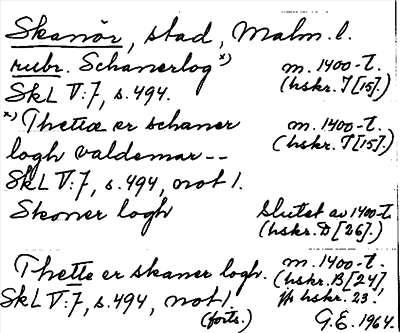 Skanör, stad, Malm. l.
rubr. Schanerlog x) m. 1400-t.
(hskr. I [15].)
SkL V:7, s. 494.
x) Thettæ er schaner m. 1400-t.
logh valdemar -- (hskr. I [15].)
SkL V:7, s. 494, not 1.
Skoner logh Slutet av 1400-t.
(hskr. D [26].)
Thette er skaner logh. m. 1400-t.
(hskr. B [24],
SkL V:7, s. 494, not 1. jfr hskr. 23.
(forts.) G.E. 1964.